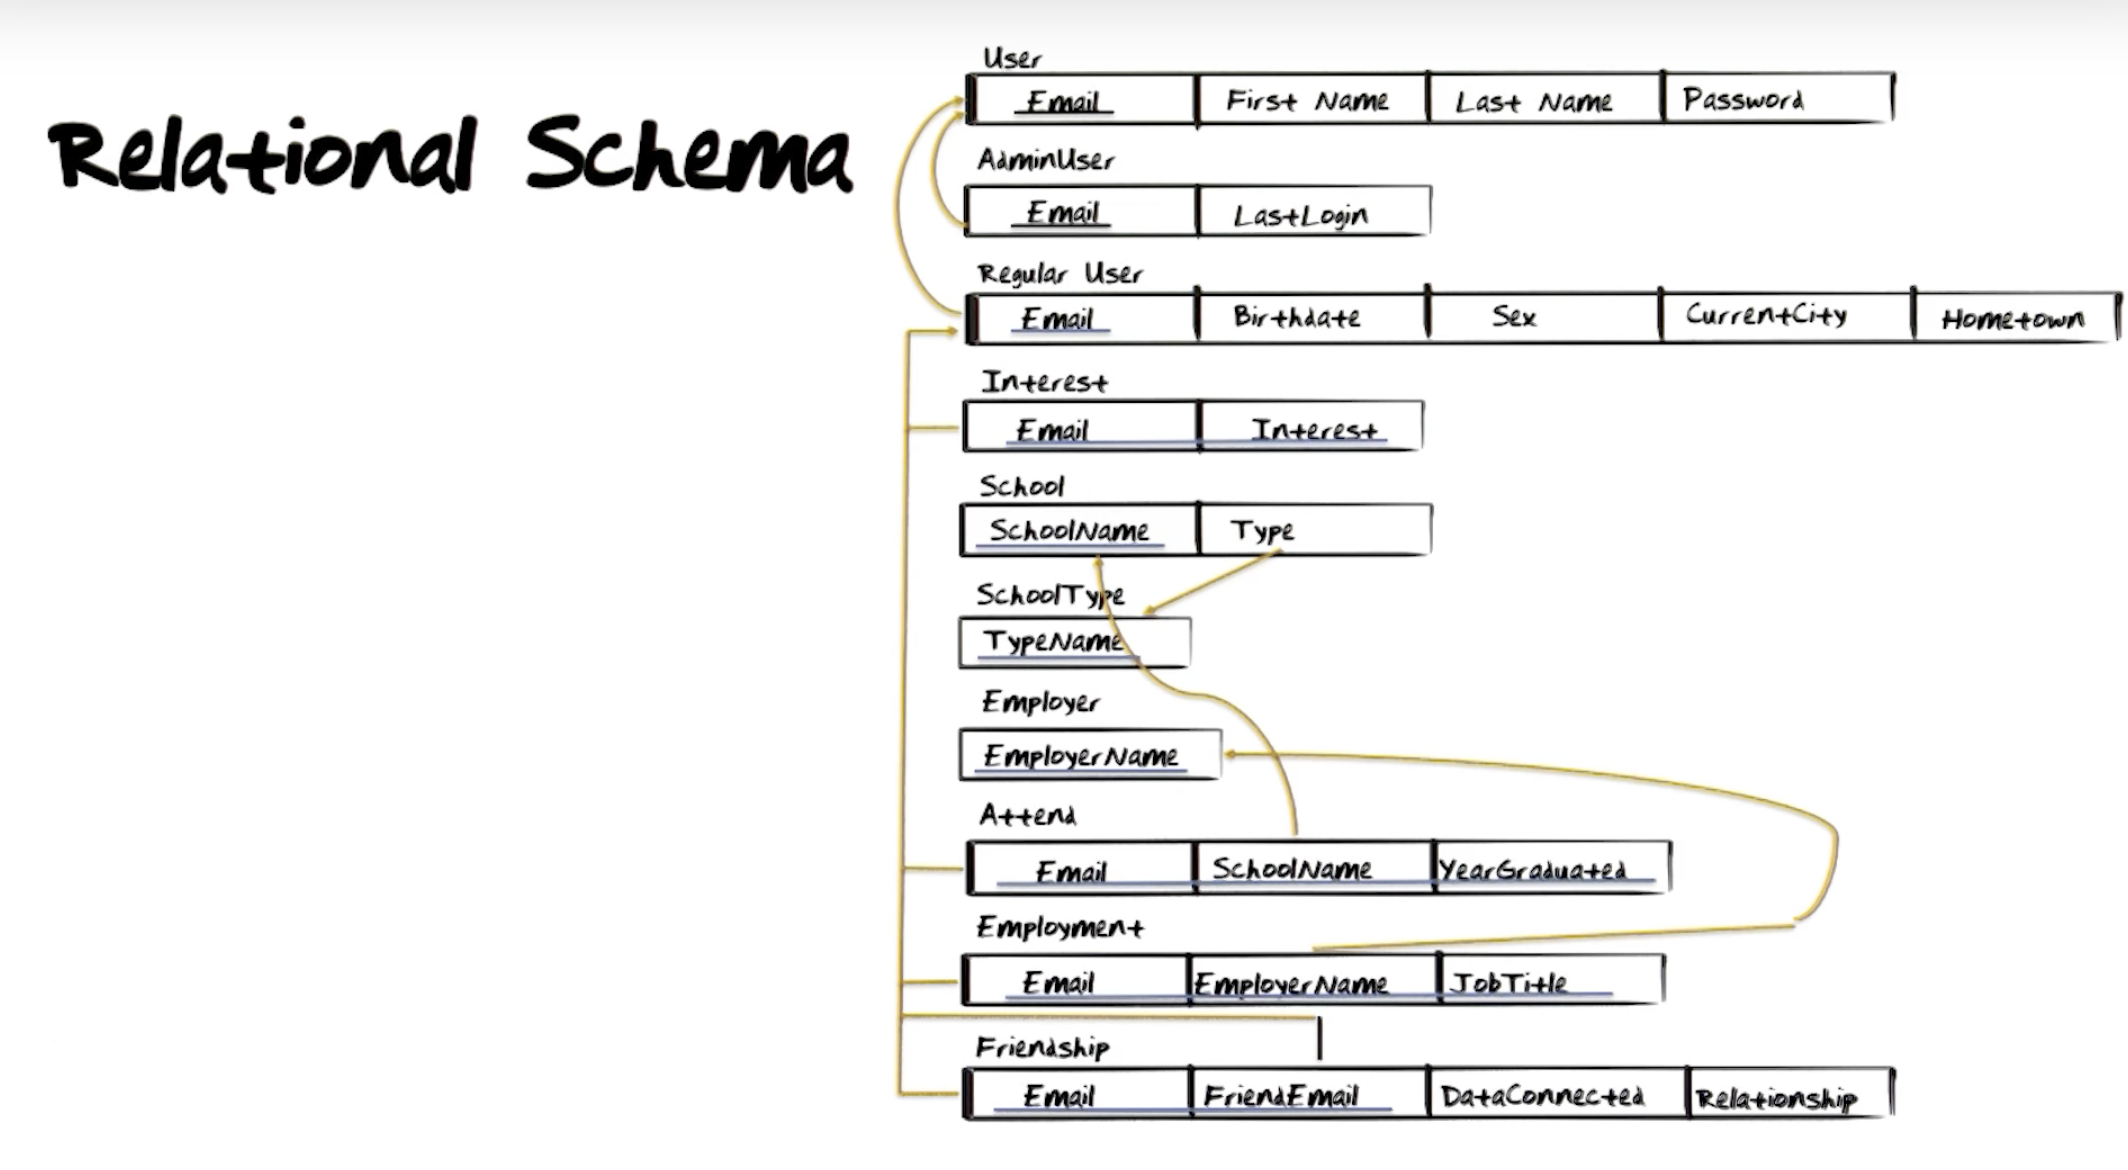 Relational Schema
User
Email First Name Last Name Password
AdminUser
Email LastLogin
Regular User
Email Birthdate Sex CurrentCity Hometown
Interest
Email Interest
School
SchoolName Type
SchoolType
TypeName
Employer
EmployerName
Attend
Email SchoolName YearGraduated
Employment
Email EmployerName JobTitle
Friendship
Email FriendEmail DataConnected Relationship